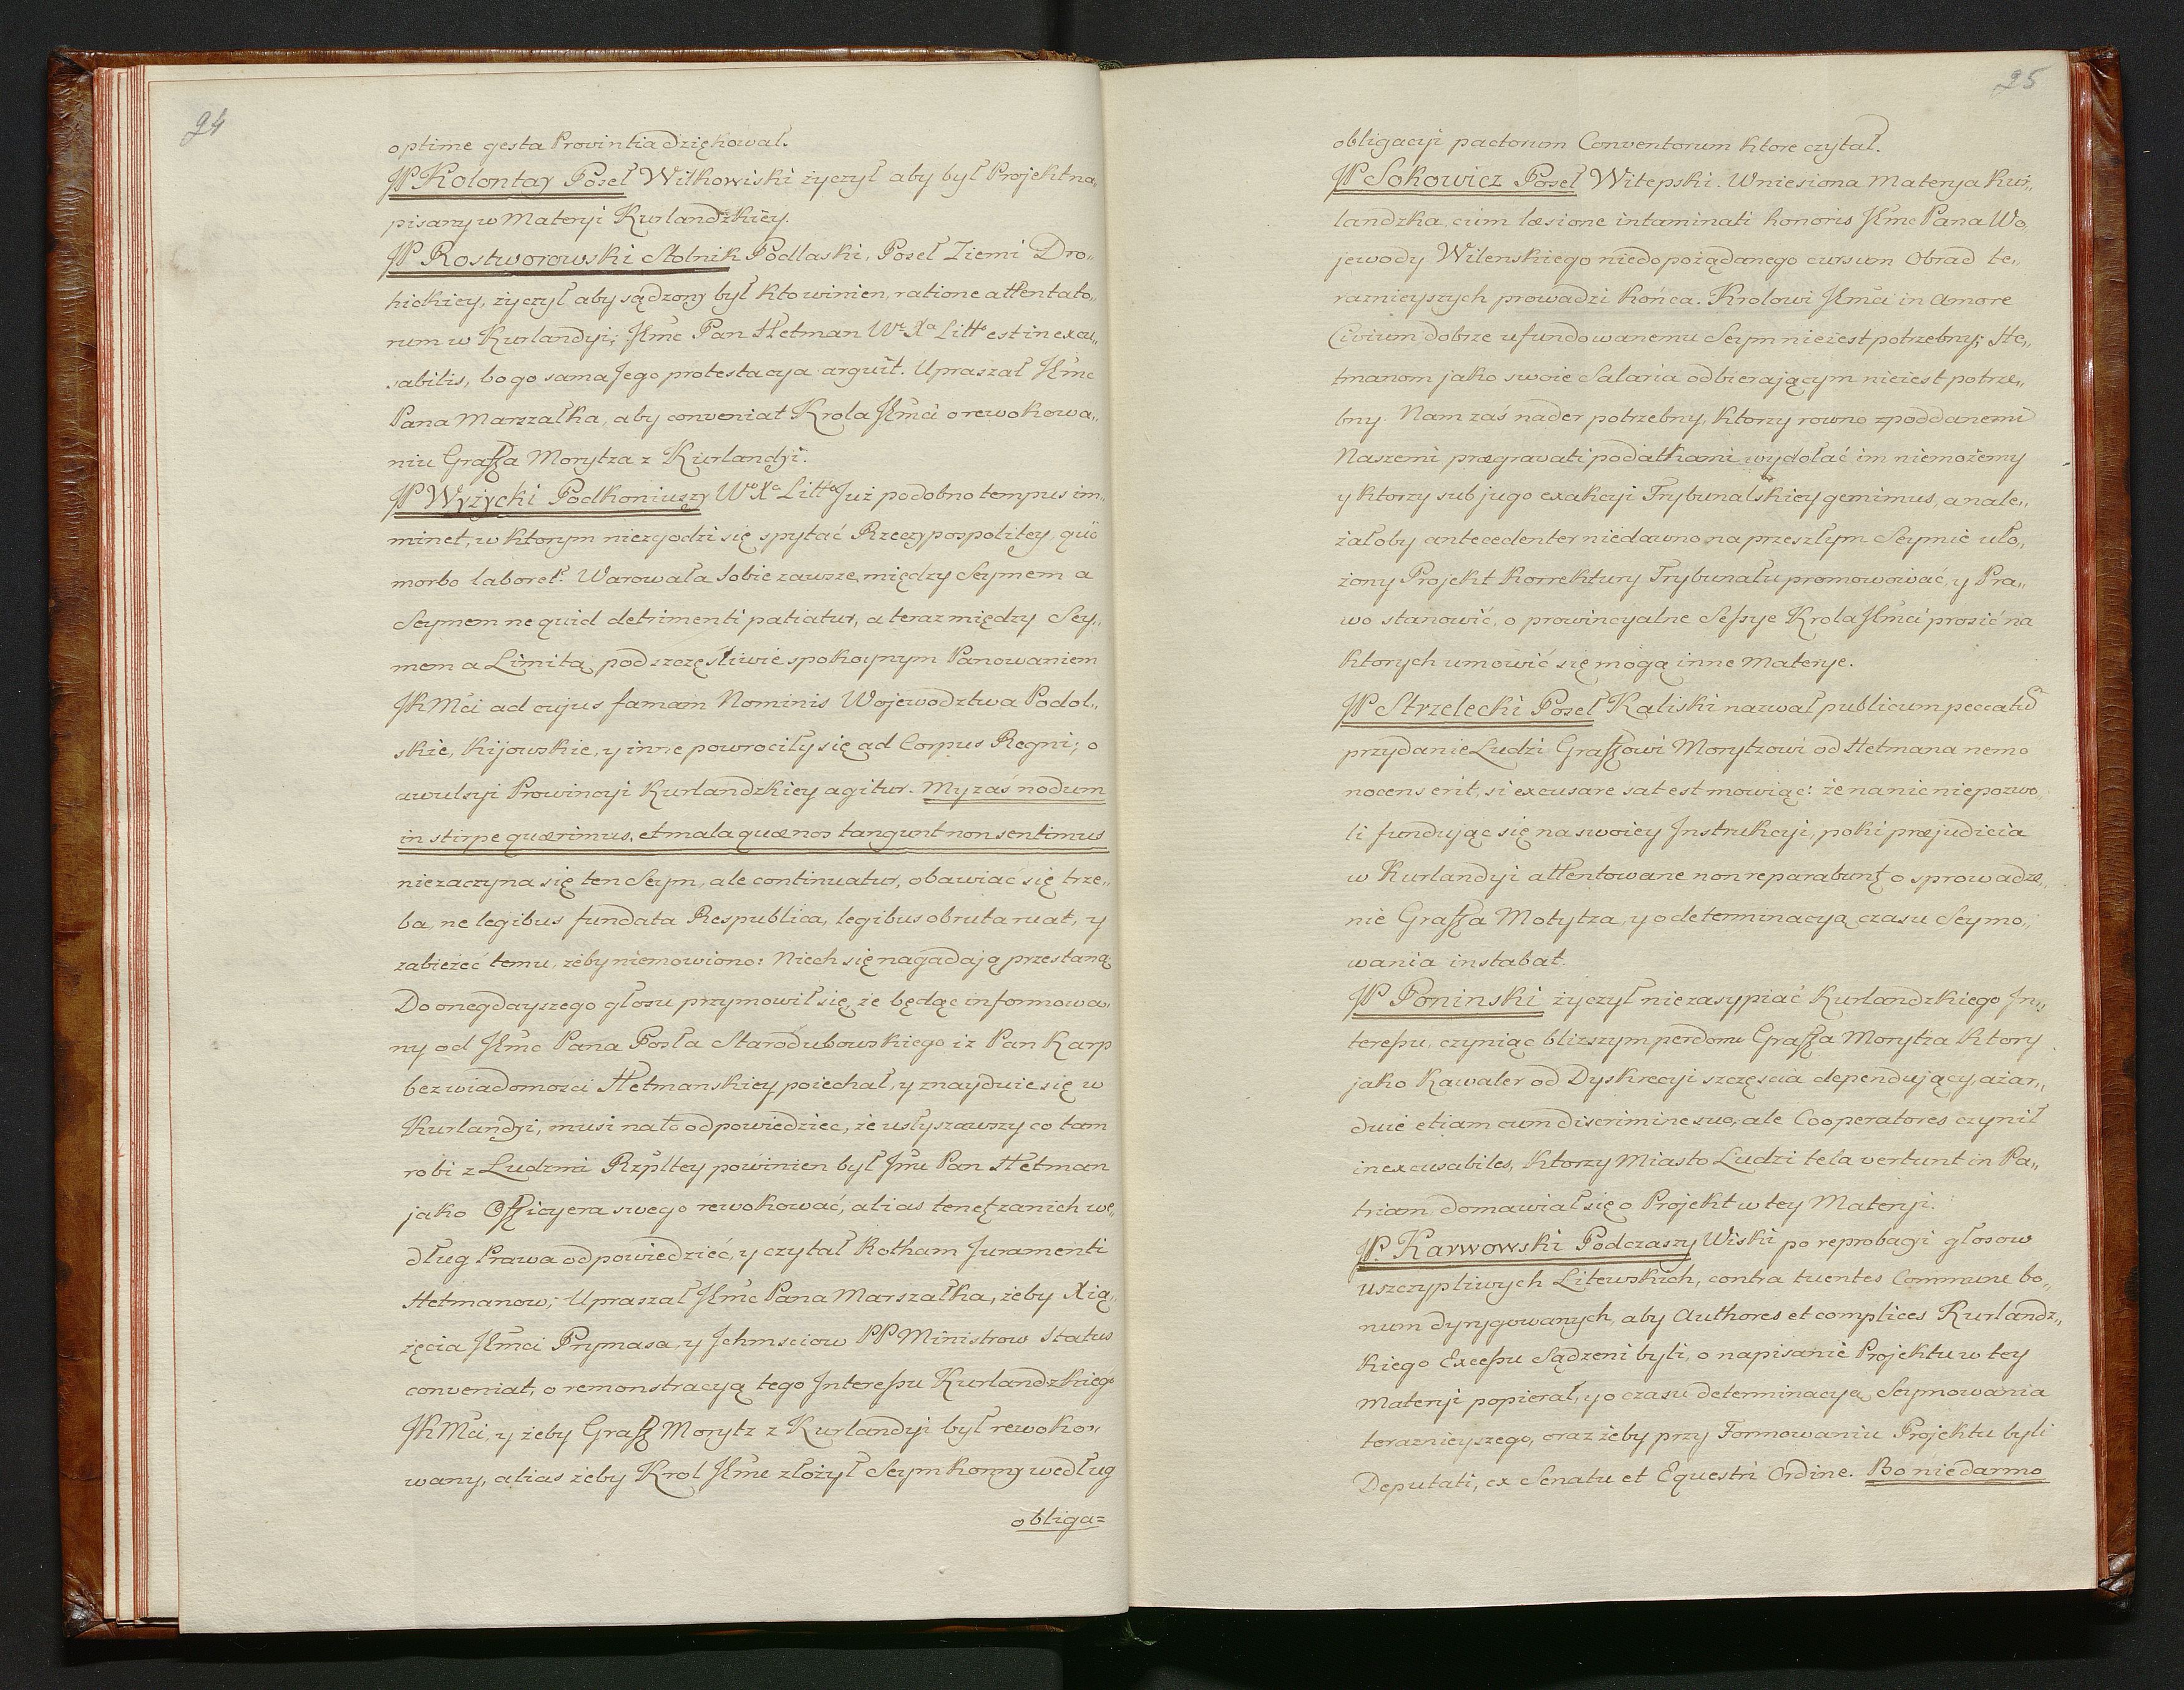 24
optime gesta Provintia dziękował.
JP Kolontay Poseł Wilkowiski życzył aby był Projekt na„
pisany w Materyi Kurlandzkiey.
JP Rostworowski Stolnik Podlaski, Poseł Ziemi Dro„
hickiey, życzył aby sądzony był kto winien, ratione attentato„
rum w Kurlandyi; Jkmc Pan Hetman Wo Xa Litto est in excu„
sabilis, bo go sama Jego protestacya arguit. Upraszał Jkmc
Pana Marszałka, aby conveniat Krola Jkmci o rewokowa„
niu Graffa Morytza z Kurlandyi.
JP Wyżycki Podkoniuszy Wo Xa Litto Już podobno tempus im„
minet, w ktorym niezgodzi się spytać Rzeczypospolitey, quo
morbo laboret? Warowała sobie zawsze, między Seymem a
Seymem ne quid detrimenti patiatur, a teraz między Sey„
mem a Limitą, pod szczęśliwie spokoynym Panowaniem
JKMci ad cujus famam Nominis Wojewodztwa Podol„
skie, Kijowskie, y inne powrociły się ad Corpus Regni; o
awulsyi Prowincyi Kurlandzkiey agitur. My zaś nodum
in stirpe quærimus, et mala quæ nos tangunt non sentimus
niezaczyna się ten Seym, ale continuatur, obawiac się trze„
ba, ne legibus fundata Respublica, legibus obruta ruat, y
zabieżeć temu, żeby niemowiono: Niech się nagadają przestaną.
Do onegdayszego głosu przymowił się, że będąc informowa„
ny od Jkmc Pana Posła Starodubowskiego iz Pan Karp
bez wiadomosci Hetmanskiey poiechał, y znayduie się w
Kurlandyi, musi na to odpowiedziec, że usłyszawszy co tam
robi z Ludzmi Rzpltey powinien był Jmc Pan Hetman
jako Officyera swego rewokować, alias tenetur za nich we„
dług Prawa odpowiedzieć, y czytał Rotham Juramenti
Hetmanow; Upraszał Jkmc Pana Marszałka, żeby Xią„
żęcia Jkmci Prymasa, y Jchmsciow PP Ministrow Status
conveniat, o remonstracyą tego Interessu Kurlandzkiego
JKMci, y żeby Graff Morytz z Kurlandyi był rewoko„
wany, alias żeby Krol Jkmc złożył Seym konny według
obliga=
25
obligacyi pactorum Conventorum ktore czytał.
JP Sokowicz Poseł Witepski. Wniesiona Materya Kur„
landzka, cum læsione intaminati honoris Jkmc Pana Wo„
jewody Wilenskiego niedopożądanego cursum Obrad te„
raznieyszych prowadzi końca. Krolowi Jkmci in amore
Civium dobrze ufundowanemu Seym nieiest potrzebny; He„
tmanom jako swoie Salaria odbierającym nieiest potrze„
bny. Nam zas nader potrzebny, ktorzy rowno z poddanemi
Naszemi prægravati podatkami wydołać im niemożemy
y ktorzy sub jugo exakcyi Trybunalskiey gemimus, a nale„
żałoby antecedenter niedawno na przeszłym Seymie uło„
żony Projekt Korrektury Trybunału promowować, y Pra„
wo stanowić, o prowincyalne Sessye Krola Jkmci prosić na
ktorych umowić się mogą inne Materye.
JP Strzelecki Poseł Kaliski nazwał publicum peccatum
przydanie Ludzi Graffowi Morytzowi od Hetmana nemo
nocens erit, si excusare sat est mowiąc: że na nic niepozwo„
li fundując się na swoiey Instrukcyi, poki præjudicia
w Kurlandyi attentowane non reparabuntur, o sprowadze„
nie Graffa Motytza, y o determinacyą czasu Seymo„
wania instabat.
JP Poninski życzył niezasypiać Kurlandzkiego In„
teressu, czyniąc bliższym perdonu Graffa Morytza ktory
jako Kawaler od Dyskrecyi szczęścia dependujący, ażar„
duie etiam cum discrimine suo, ale Cooperatores czynił
inexcusabiles, ktorzy Miasto Ludzi tela vertunt in Pa„
triam, domawiał się o Projekt w tey Materyi.
JP. Karwowski Podczaszy Wiski po reprobacyi głosow
uszczypliwych Litewskich, contra tuentes Commune bo„
num dyrygowanych, aby Authores et complices Kurlandz„
kiego Excessu sądzeni byli, o napisanie Projektu w tey
Materyi popierał, y o czasu determinacyą Seymowania
teraznieyszego, oraz żeby przy Formowaniu Projektu byli
Deputati, ex Senatu et Equestri Ordine. Bo niedarmo